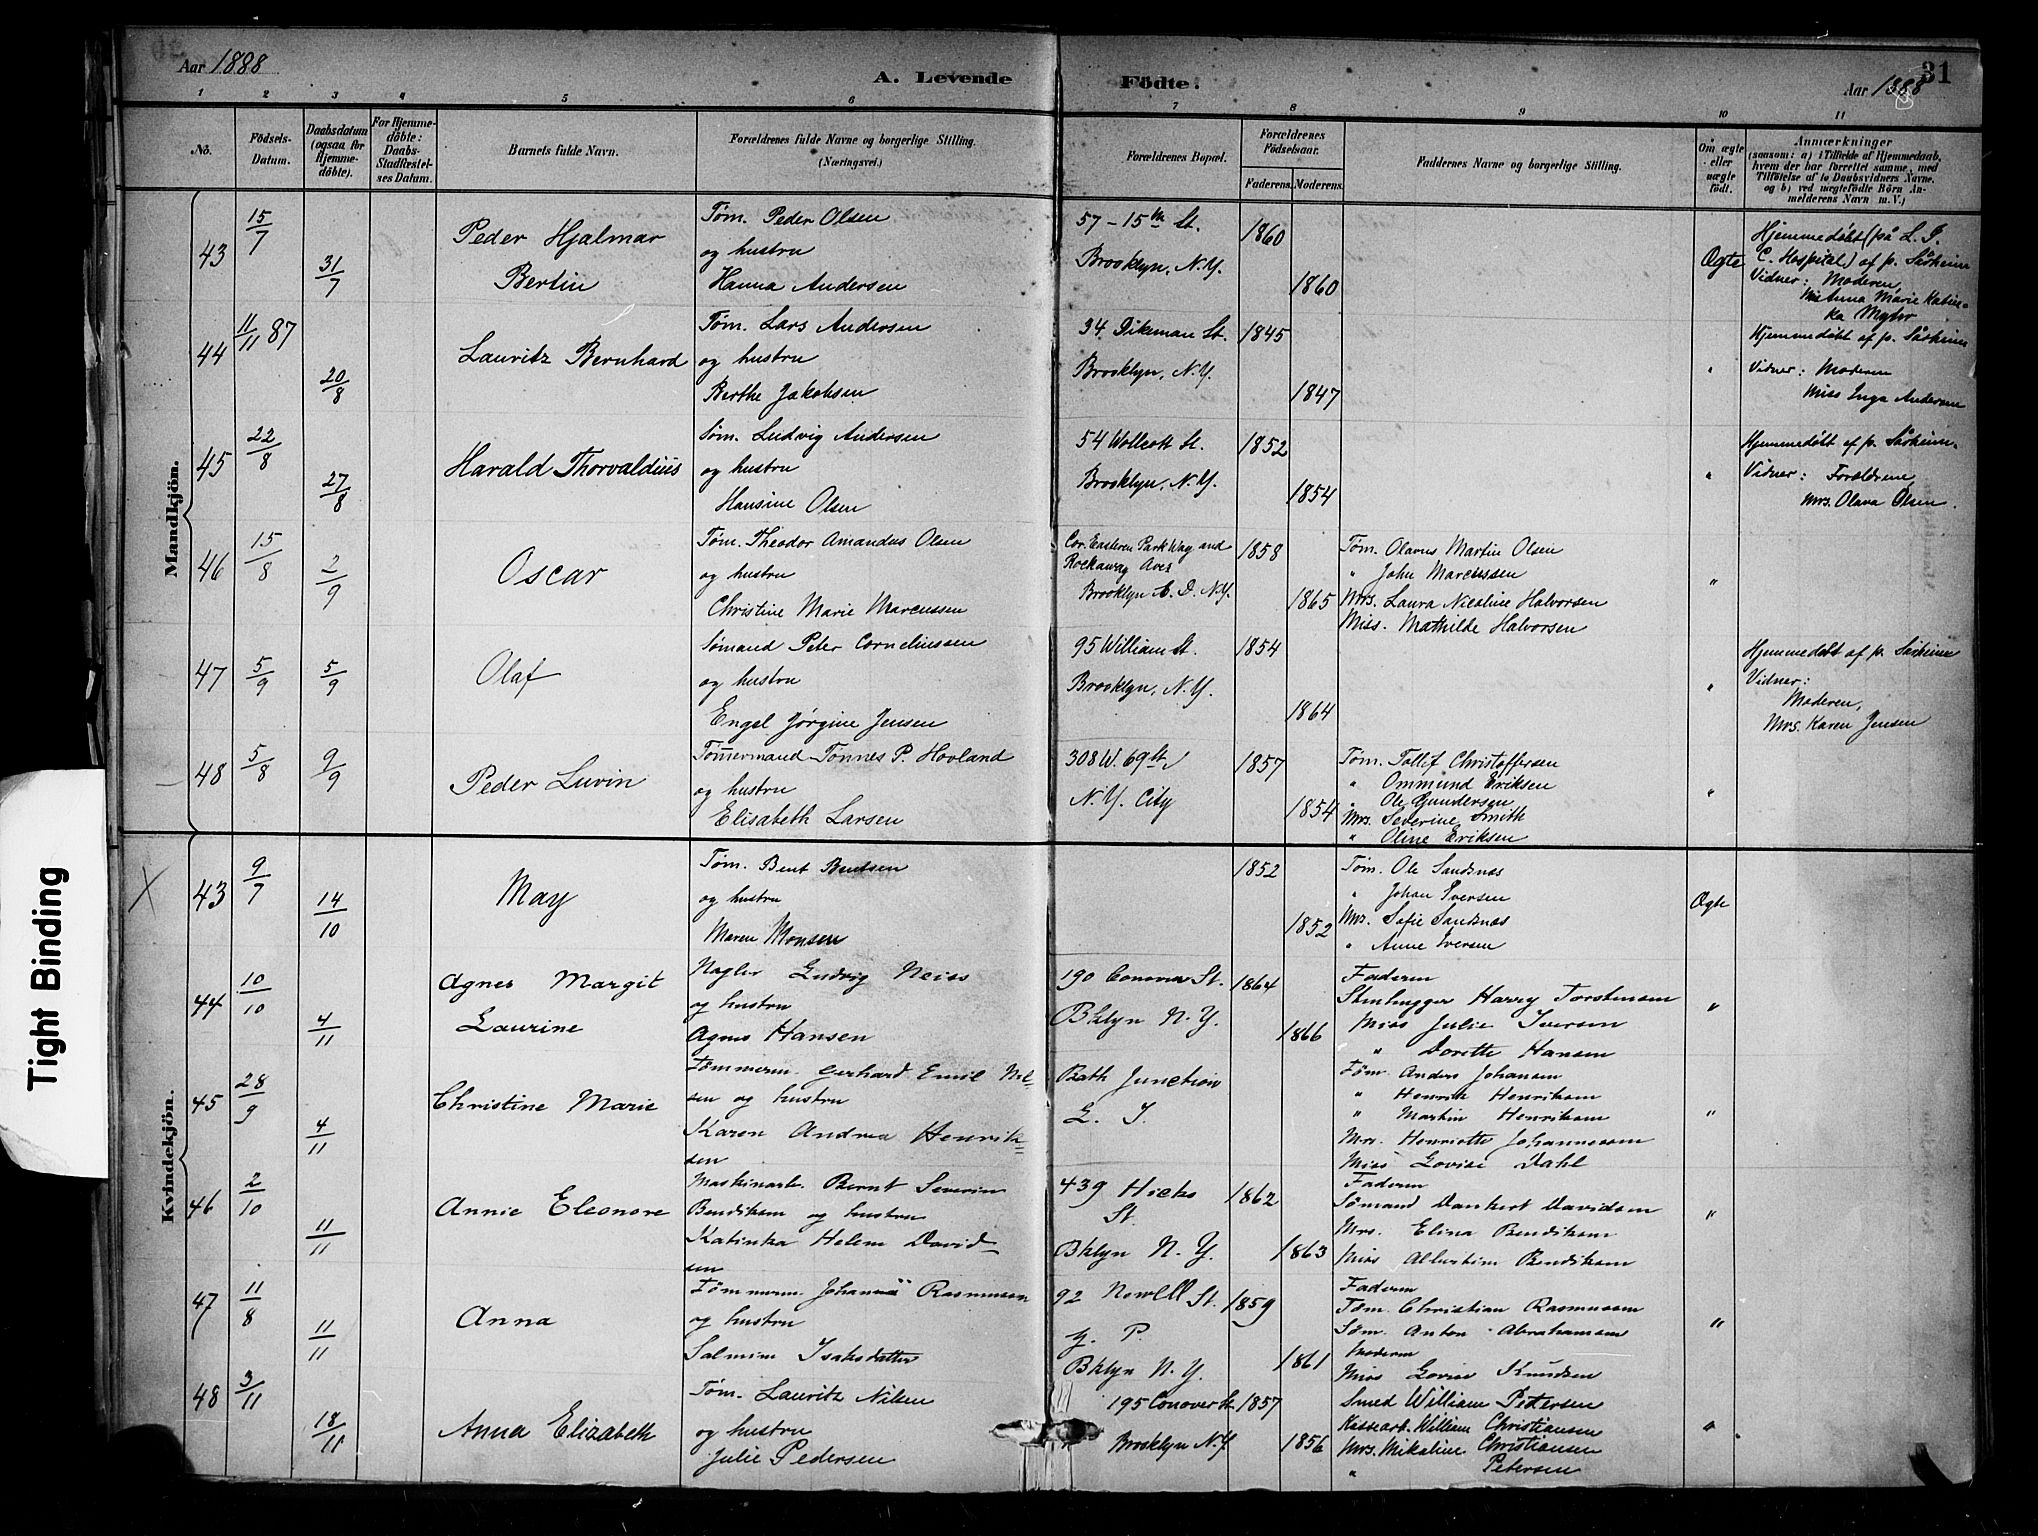 Aar 1888
A. Levende
Fødte.
Aar 1888
31
1 2 3 4 5 6 7 8 9 10 11
No.
Födsels-
Datum.
Daabsdatum
(ogsaa for
Hjemme-
døbte).
For Hjemme-
døbte:
Daabs-
Stadfæstel-
ses Datum.
Barnets fulde Navn.
Forældrenes fulde Navne og borgerlige Stilling.
(Næringsvei.)
Forældrenes Bopæl.
Forældrenes
Födselsaar.
Faderens. Moderens.
Faddernes Navne og borgerlige Stilling.
Om ægte
eller
uægte
født.
Anmærkninger
(saasom: a) i Tilfælde af Hjemmedaab,
hvem der har forrettet samme, med
Tilføielse af to Daabsvidners Navne,
og b) ved uægtefödte Börn An-
melderens Navn m. V.)
Mandkjön.
43
15/7
31/7
Peder Hjalmar
Bertin
Tøm. Peder Olsen
og hustru
Hanna Andersen
57 - 15th St.
Brooklyn, N.Y.
1860
1860
Ægte
Hjemmedøbt (på L. I.
C. Hospital) af p. Sårheim
Vidner: Moderen,
Anna Marie Katin-
ka
44
11/11 87
20/8
Lauritz Bernhard
Tøm. Lars Andersen
og hustru
Berthe Jakobsen
34 Dikeman St.
Brooklyn, N.Y.
1845
1847
"
Hjemmedøbt af p. Sårheim
Vidner: Moderen
Miss Inga Andersen
45
22/8
27/8
Harald Thorvaldius
Søm. Ludvig Andersen
og hustru
Hansine Olsen
54 Wolcott St.
Brooklyn, N.Y.
1852
1854
"
Hjemmedøbt af p. Sårheim.
Vidner: Forældrene,
Mrs. Olava Olsen.
46
15/8
2/9
Oscar
Tøm. Theodor Amandus Olsen
og hustru
Christine Marie Marcussen
Cor. Eastern Park Way and
Rockaway Aves
Brooklyn E. D. N.Y.
1858
1865
Tøm. Olavus Martin Olsen
" John Marcussen
Mrs. Laura Nicoline Halvorsen
Miss. Mathilde Halvorsen
"
47
5/9
5/9
Olaf
Sømand Peter Corneliussen
og hustru
Engel Jørgine Jensen
95 William St.
Brooklyn, N.Y.
1854
1864
"
Hjemmedøbt af p. Sårheim
Vidner:
Moderen,
Mrs. Karen Jensen
48
5/8
9/9
Peder Luvin
Tømmermand Tønnes P. Hovland
og hustru
Elisabeth Larsen
308 W. 69th
N.Y. City
1857
1854
Tøm. Tollif Christoffersen
" Ommund Eriksen
" Ole Gundersen
Mrs. Severine Smith
" Oline Eriksen
"
Kvindekjön.
X
43
9/7
14/10
May
Tøm. Bent Bentsen
og hustru
Maren Monsen
1852
1852
Tøm. Ole Sandnæs
" Johan Iversen
Mrs. Sofie Sandnæs
" Anne Iversen
Ægte
44
10/10
4/11
Agnes Margit
Laurine
Nagler Ludvig Neiss
og hustru
Agnes Hansen
190 Conover St.
Bklyn N.Y.
1864
1866
Faderen
Stenhugger Harry Torstensen
Miss Julie Iversen
" Dorethe Hansen
"
45
28/9
4/11
Christine Marie
Tømmerm. Gerhard Emil Nil-
sen og hustru
Karen Andrea Henrik-
sen
Bath Junction
L. I.
Tøm. Anders Johansen
" Henrik Henriksen
" Martin Henriksen
Mrs. Henriette Johannessen
Miss Lovise Dahl
"
46
2/10
11/11
Annie Eleonore
Maskinarb. Bernt Severin
Bendiksen og hustru
Katinka Helene David-
sen
439 Hicks
St.
Bklyn N.Y.
1862
1863
Faderen
Sømand Dankert Davidsen
Mrs. Elina Bendiksen
Miss Albertine Bendiksen
"
47
11/8
11/11
Anna
Tømmerm. Johannes Rasmussen
og hustru
Salmine Isaksdatter
92 Newell St.
G. P.
Bklyn N.Y.
1859
1861
Faderen
Tøm. Christian Rasmussen
Søm. Anton Abrahamsen
Moderen
Miss Lovise Knudsen
"
48
3/11
18/11
Anna Elizabeth
Tøm. Lauritz Nilsen
og hustru
Julie Pedersen
195 Conover St
Brooklyn N.Y.
1857
1856
Smed William Petersen
Kassearb. William Christiansen
Mrs. Mikaline Christiansen
" Petersen
"
Tight Binding